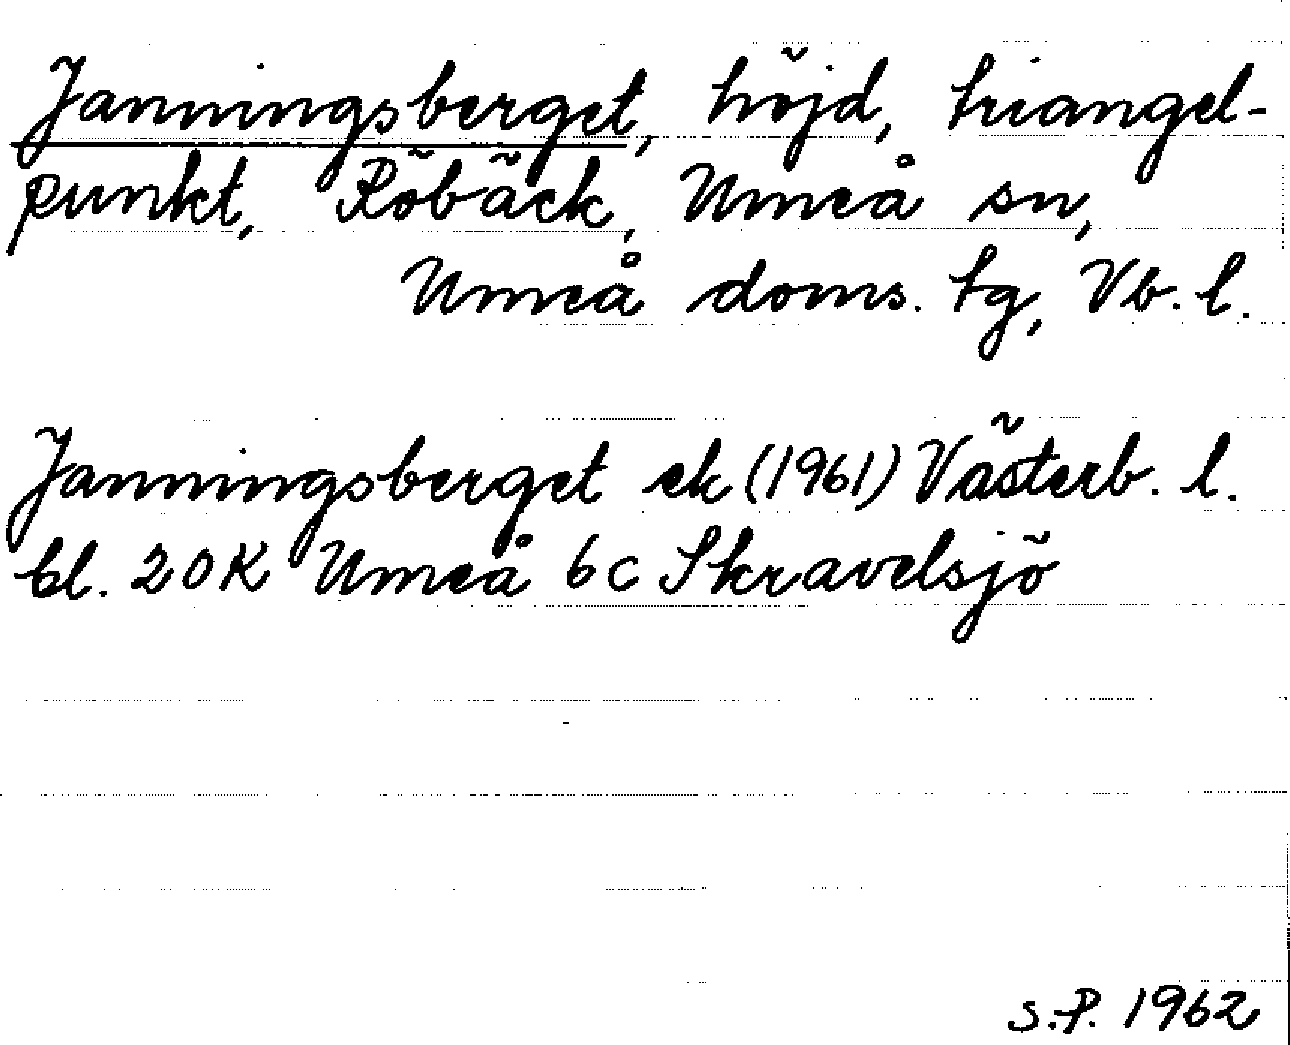 Janningsberget, höjd, triangel-
punkt, Röbäck, Umeå sn,
Umeå doms. tg, Vb. l.
Janningsberget ek (1961) Västerb. l.
bl. 20K Umeå 6c Skravelsjö
S.P. 1962